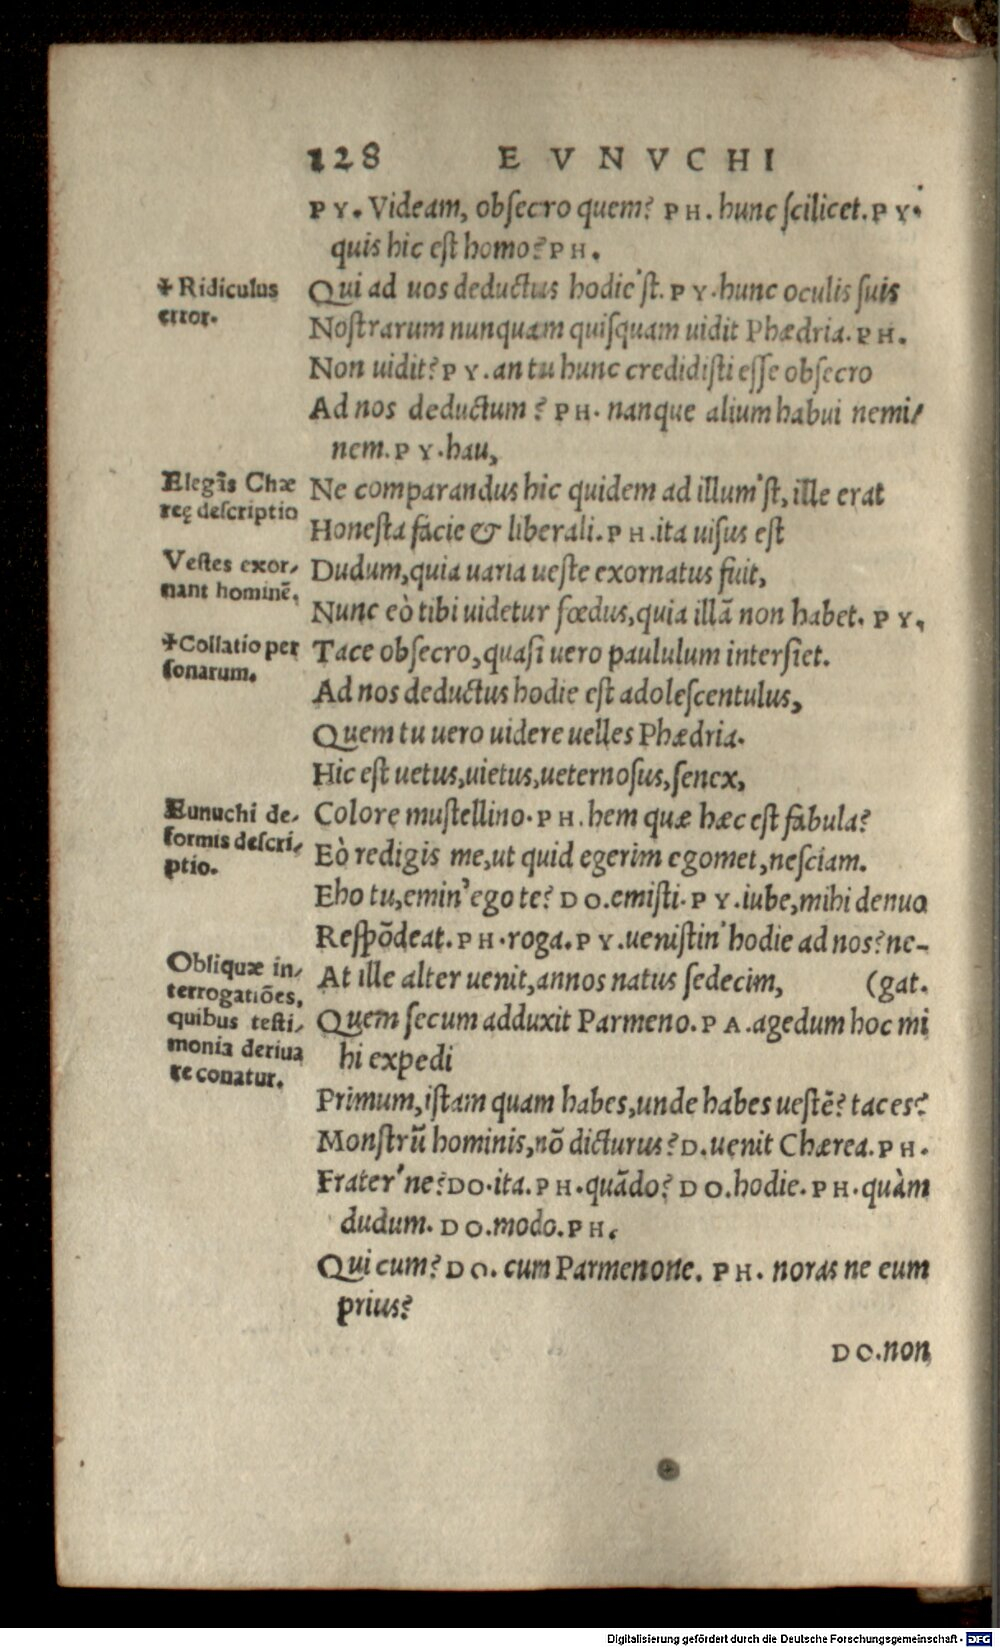 128 EVNVCHI
PY. Videam, obſecro quem? PH. hunc ſcilicet. PY.
quis hic eſt homo? PH.
✢ Ridiculus
error.
Qui ad uos deductus hodie'ſt. PY. hunc oculis ſuis
Noſtrarum nunquam quiſquam uidit Phædria. PH.
Non uidit? PY. an tu hunc credidiſti eſſe obſecro
Ad nos deductum? PH. nanque alium habui nemi/
nem. PY. hau,
Elegãs Chæ
reę deſcriptio
Ne comparandus hic quidem ad illum'ſt, ille erat
Honeſta facie & liberali. PH. ita uiſus eſt
Veſtes exor/
nant hominẽ.
Dudum, quia uaria ueſte exornatus fuit,
Nunc eò tibi uidetur fœdus, quia illã non habet. PY,
✢Collatio per
ſonarum.
Tace obſecro, quaſi uero paululum interſiet.
Ad nos deductus hodie eſt adoleſcentulus,
Quem tu uero uidere uelles Phædria.
Hic eſt uetus, uietus, ueternoſus, ſenex,
Eunuchi de/
formis deſcri/
ptio.
Colore muſtellino. PH. hem quæ hæc eſt fabula?
Eò redigis me, ut quid egerim egomet, neſciam.
Eho tu, emin' ego te? DO. emiſti. PY. iube, mihi denuo
Reſpõdeat. PH. roga. PY. ueniſtin' hodie ad nos? ne-
Obliquæ in/
terrogatiões,
quibus teſti/
monia deriua
re conatur.
At ille alter uenit, annos natus ſedecim, (gat.
Quem ſecum adduxit Parmeno. PA. agedum hoc mi
hi expedi
Primum, iſtam quam habes, unde habes ueſtẽ? taces?
Monſtrũ hominis, nõ dicturus? D. uenit Chærea. PH.
Frater'ne? DO. ita. PH. quãdo? DO. hodie. PH. quàm
dudum. DO. modo. PH.
Qui cum? DO. cum Parmenone. PH. noras ne eum
prius?
DO. non
Digitalisierung gefördert durch die Deutsche Forschungsgemeinschaft - DFG